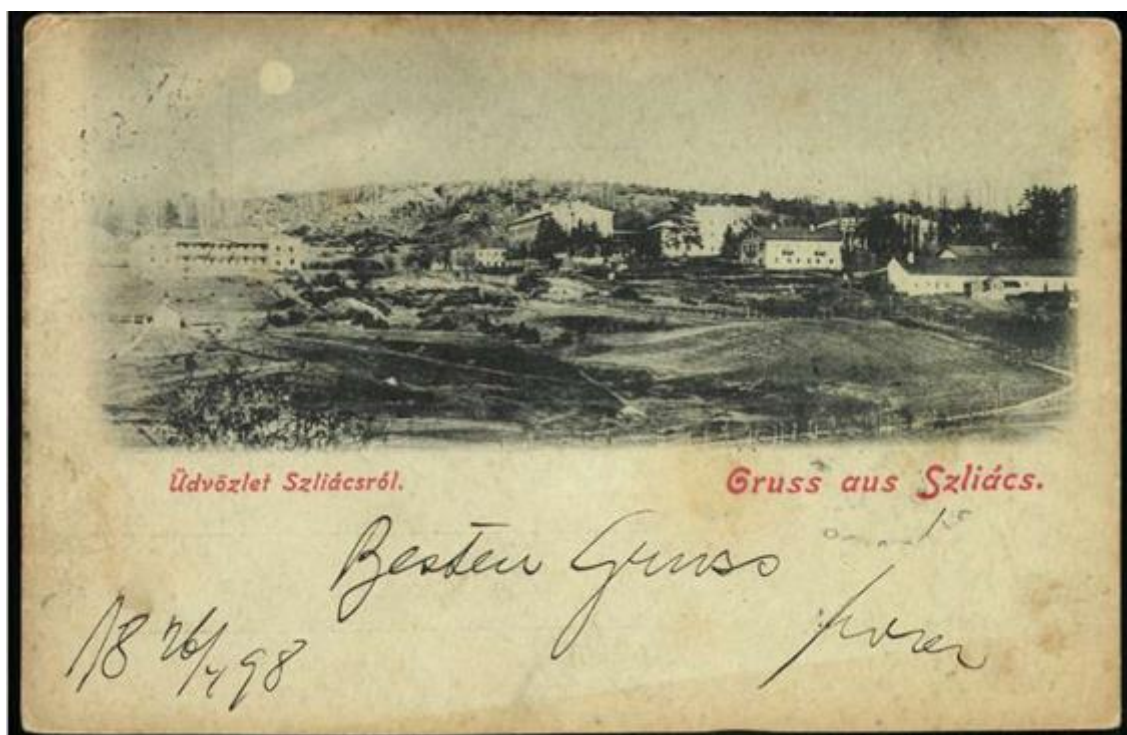 Üdvözlet Szliácsról.
Gruss aus Szliács.
Besten Gruss
18 26/7 98